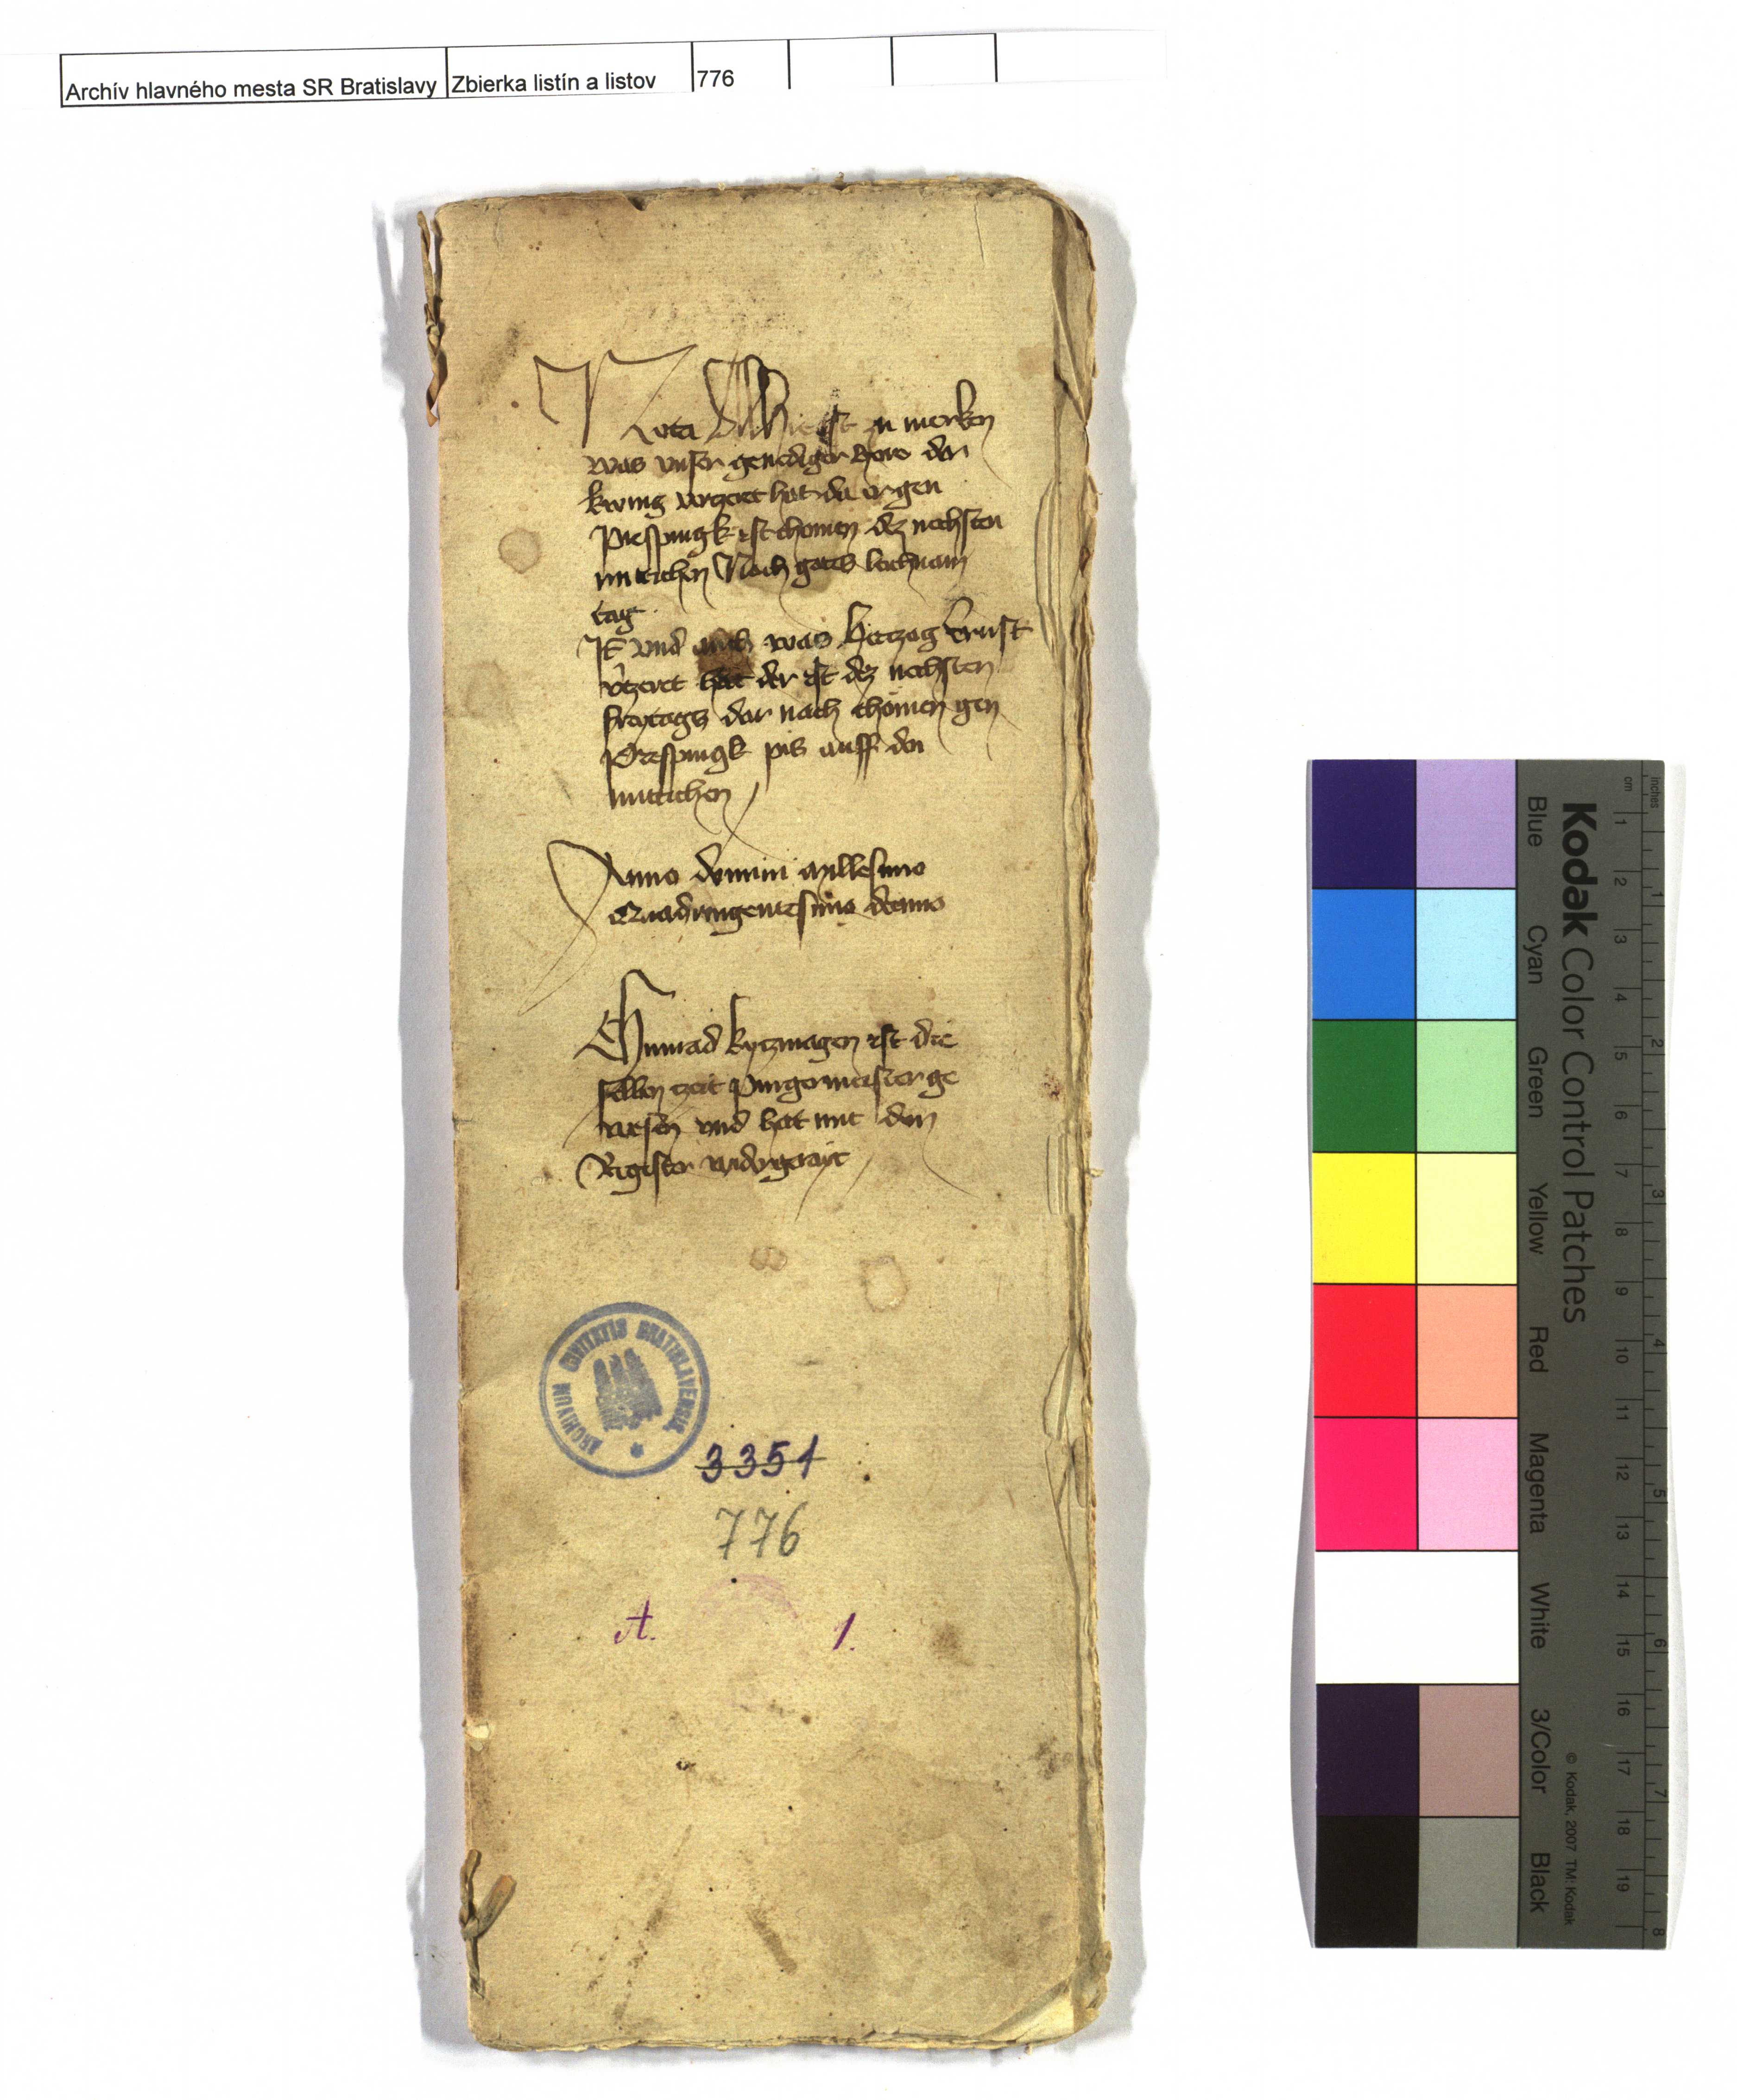 Archív hlavného mesta SR Bratislavy Zbierka listín a listov 776
Nota Alhie ist zu merken
was vnser genediger herr der
kunig vertzert hat da er gen
Prespurgk ist chomen dez nechsten
mittichen Nach gotes leichnam
tag
It vnd auch was Hertzog Ernst
vtzeret hat der ist dez nechsten
freytags dar nach chomen gen
Prespurgk pis auff den
mittichen
Anno domini millesimo
Quadringentesimo decimo
Chunrad kytzmagen ist die
selben zeit Purgermeister ge
wesen vnd hat mit dem
Register widergerayt
ARCHIVUM CIVITATIS BRATISLAVENSIS
3351
776
A. 1.
Kodak Color Control Patches
Blue Cyan Green Yellow Red Magenta White 3/Color Black
© Kodak, 2007 TM: Kodak
inches 1 2 3 4 5 6 7 8
cm 1 2 3 4 5 6 7 8 9 10 11 12 13 14 15 16 17 18 19